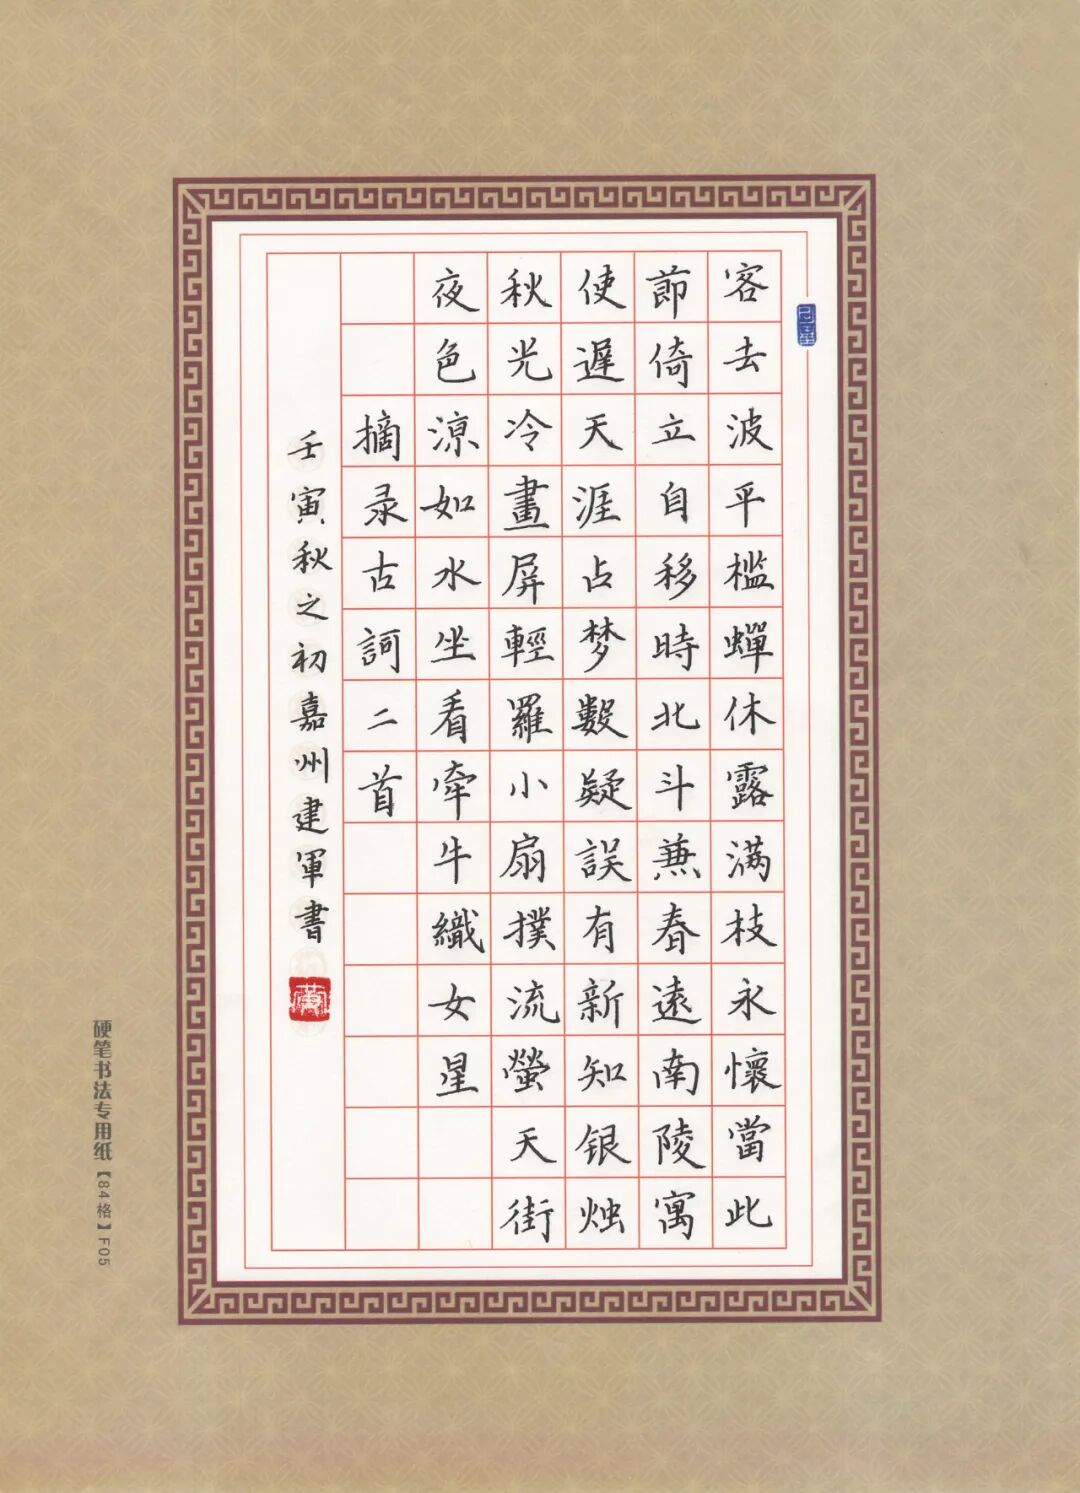 客去波平槛蟬休露满枝永懷當此
節倚立自移時北斗兼春遠南陵寓
使遲天涯占梦數疑誤有新知银烛
秋光冷畫屏輕羅小扇撲流螢天街
夜色涼如水坐看牽牛織女星
摘录古詞二首
壬寅秋之初嘉州建軍書
硬笔书法专用纸【84格】F05